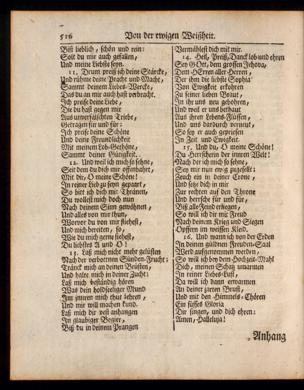 516 Von der ewigen Weißheit.
Bist lieblich, schön und rein:
Solt du mir auch gefallen,
Und meine Liebste seyn.
11. Drum preiß ich deine Stärcke,
Und rühme deine Pracht und Macht,
Sammt deinem Liebes-Wercke,
Das du an mir auch hast verbracht.
Ich preise deine Liebe,
Die du hast gegen mir
Aus unverfälschten Triebe,
Getragen für und für:
Ich preise deine Schöne
Und deine Freundlichkeit
Mit meinem Lob-Gethöne,
Sammt deiner Gütigkeit.
12. Und weil ich mich so sehne,
Seit dem du dich mir offenbahrt,
Mit dir, O meine Schöne!
In reiner Lieb zu seyn gepaart,
So bitt ich dich mit Thränen,
Du wollest mich doch nun
Nach deinem Sinn gewöhnen,
Und alles von mir thun,
Worvor du von mir fliehest,
Und mich bereiten, so,
Wie du mich gerne siehest,
Du liebstes A und O!
13. Laß mich nicht mehr gelüsten
Nach der verbotnen Sünden-Frucht:
Tränck mich an deinen Brüsten
Und halte mich in deiner Zucht:
Laß mich beständig hören
Was dein holdseeliger Mund
Im innren mich thut lehren,
Und mir will machen kund.
Laß mich dir vest anhangen
In glaubiger Begier,
Biß du in deinem Prangen
Vermählest dich mit mir.
14. Heil, Preiß, Danck, lob und ehren
Sey Gott, dem grossen Jehova,
Dem Herren aller Herren,
Der ihm die liebste Sophia
Von Ewigkeit erkohren
Zu seiner lieben Braut,
In ihr uns neu gebohren,
Und weil er uns vertraut
Aus ihren Lebens-Füssen,
Und so weit ausgebreit,
So sey er auch gepriesen
In Zeit und Ewigkeit.
15. Und du, O meine Schöne!
Du Herrscherin der innren Welt!
Nach der ich mich so sehne,
Sey mir nun ewig zugesellt:
Zeuch ein in deine Crone,
Und setze dich in mir
Zur rechten auf den Throne
Und herrsche für und für,
Biß alle Feind erlegen,
So will ich dir mit Freud
Nach deinem Krieg und Siegen
Opffern im weissen Kleid.
16. Und wann ich von der Erden
In deinen güldnen Freuden-Saal
Werd aufgenommen werden,
So will ich bey dem Hochzeit-Mahl
Dich, meinen Schatz umarmen
In reiner Liebes-Lust,
Da will ich dann erwarmen
An deiner zarten Brust,
Und mit den Himmels-Chören
Ein süsses Gloria
Dir singen, und dich ehren:
Amen, Halleluja!
Anhang